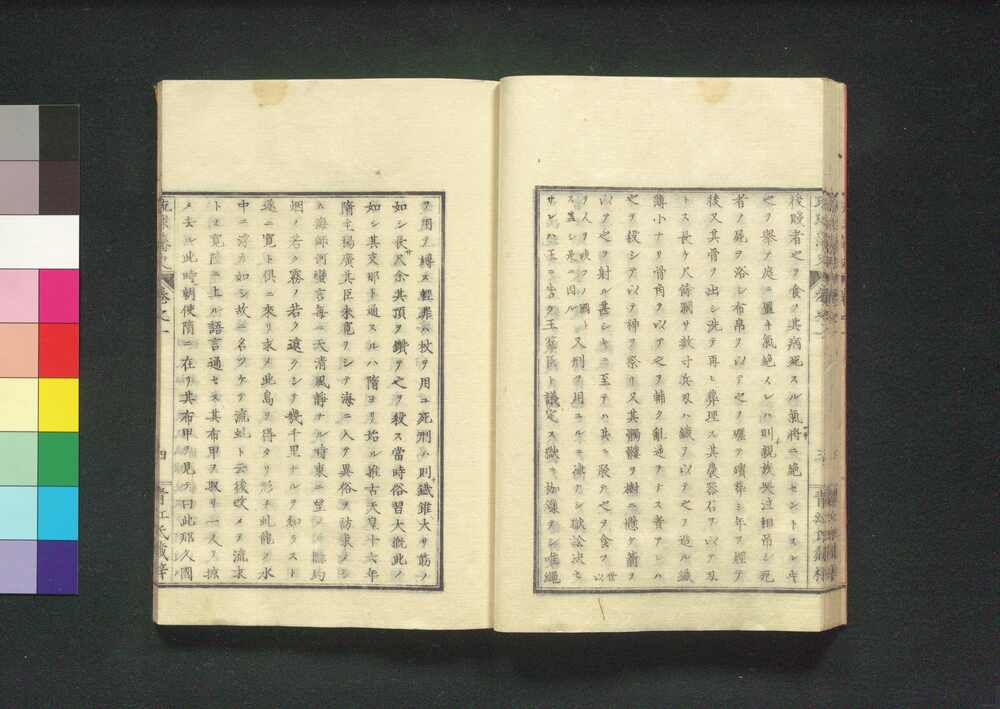 後賤者之ヲ食フ其病死スル氣將ニ絶セントスレハ
之ヲ擧ケ庭ニ置キ氣絶イレハ則親族哭泣相吊シ死
者ノ屍ヲ浴シ布帛ヲ以テ之ヲ纏テ殯葬ニ年ヲ經テ
後又其骨ヲ出シ洗テ再ヒ葬埋ス其農器石ヲ以テ刃
トス長ケ尺餘闊サ數寸兵刃ハ鐵ヲ以テ之ヲ造ル鐵
薄小ナリ骨角ヲ以テ之ヲ輔ク亂逆ヲナス者アレハ
之ヲ殺シテ以テ神ヲ祭リ又其髑髏ヲ樹ニ懸ケ箭ヲ
以テ之ヲ射ル甚シキニ至テハ其ノ聚テ之ヲ食フ
又刑ヲ用ユルニ律ナシ獄訟決セ
サレハ王ニ告ク王羣臣ト議定ス獄ニ枷鎖ナシ唯繩
ヲ用テ縛ス輕罪ハ杖ヲ用ユ死刑ハ則鐵錐大サ筋ノ
如シ長サ尺余其頂ヲ鑽テ之ヲ殺ス當時俗習大概此ノ
如シ其支那ト通スルハ隋ヨリ始ル推古天皇十六年
隋主楊廣其臣朱寛ヲシテ海ニ入テ異俗ヲ訪求メシ
ム海師何蠻言毎ニ天清風靜ナルノ時東ニ望メハ隱約
烟ノ若ク霧ノ若ク遠クシテ幾千里ナルヲ知ラスト
遂ニ寛ト倶ニ來リ求メ此島ヲ得タリ形チ虬龍ノ水
中ニ浮カ如シ故ニ名ツケテ流虬ト云後改メテ流求
トス寛陸ニ上ル語言通セス其布甲ヲ取リ一人ヲ掠
メ去ル此時朝使隋ニ在リ其布甲ヲ見テ曰此邪久國
卷之一
四